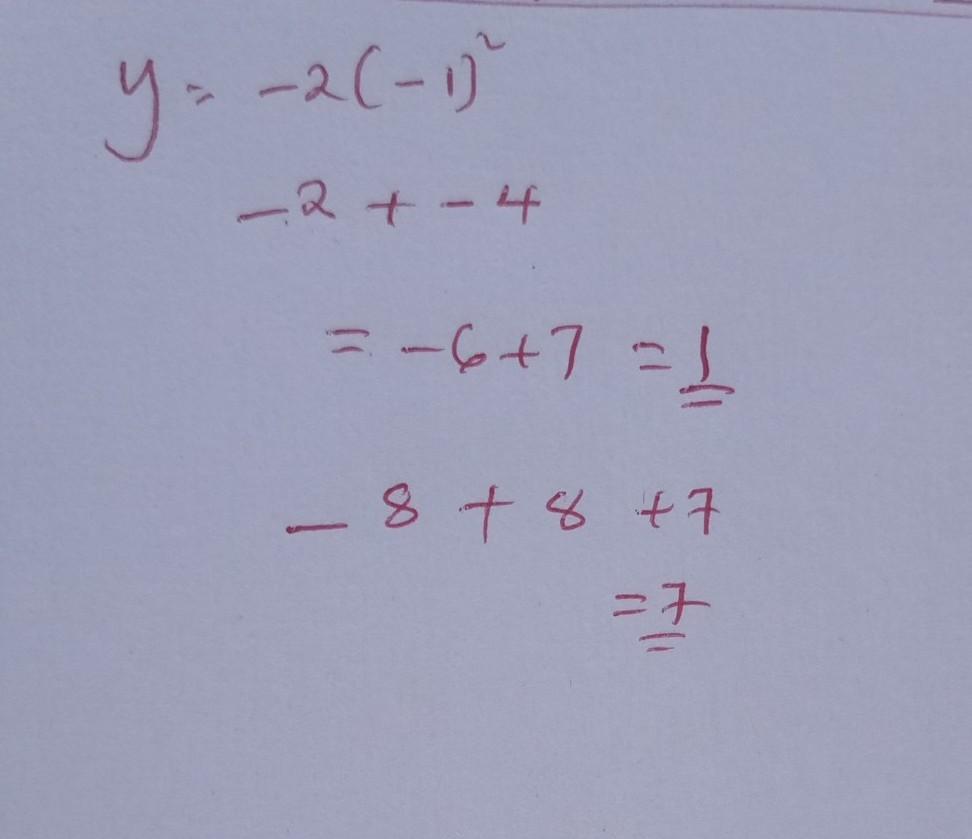 y = -2(-1)²
-2 + -4
= -6+7 = 1
- 8 + 8 +7
= 7